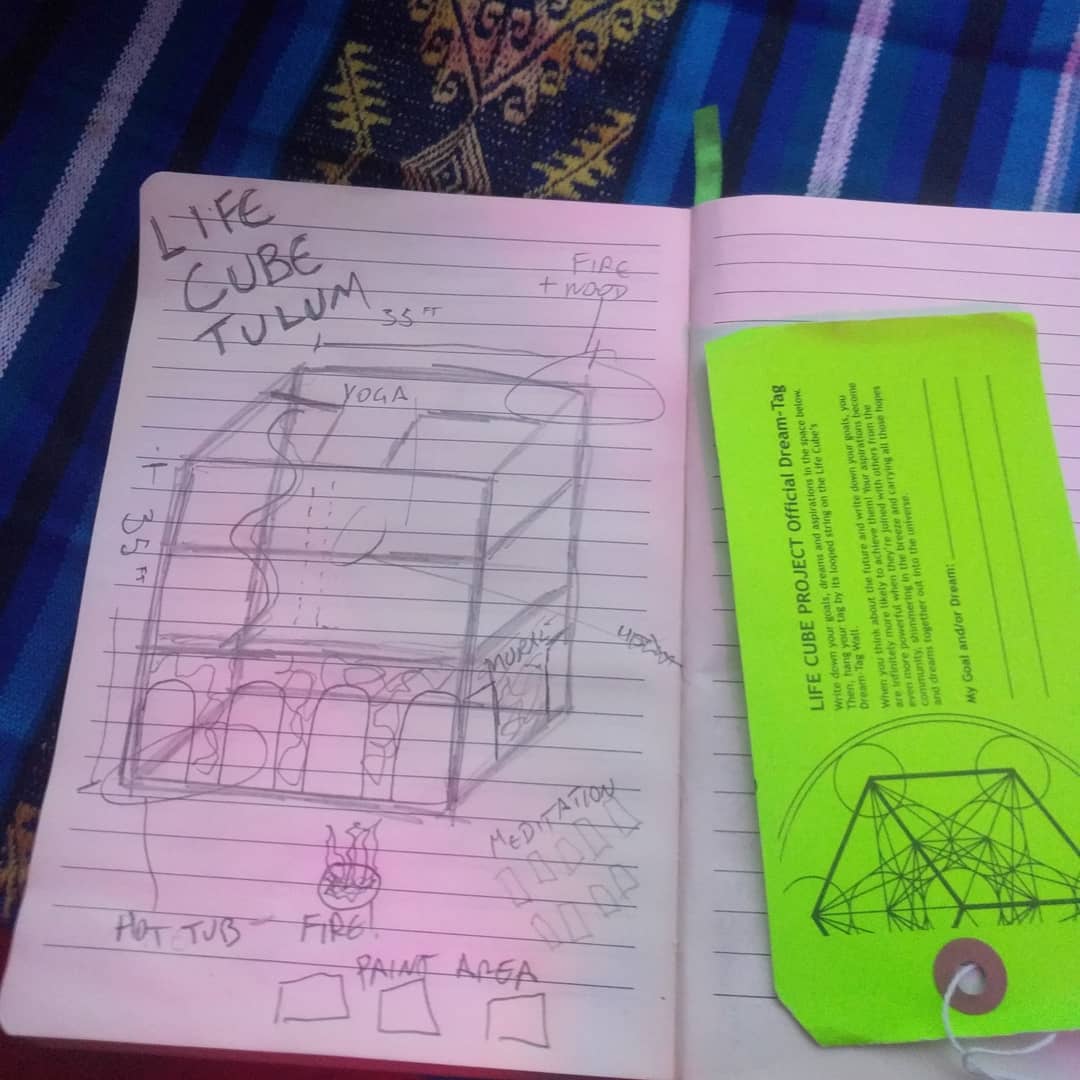 LIFE
CUBE
TULUM
35 FT
FIRE
+ WOOD
YOGA
35 FT
MURAL
MEDITATION
HOT TUB
FIRE
PAINT AREA
LIFE CUBE PROJECT Official Dream-Tag
Write down your goals, dreams and aspirations in the space below.
Then, hang your tag by its looped string on the Life Cube's
Dream-Tag Wall.
When you think about the future and write down your goals, you
are infinitely more likely to achieve them! Your aspirations become
even more powerful when they're joined with others from the
community, shimmering in the breeze and carrying all those hopes
and dreams together out into the universe.
My Goal and/or Dream: